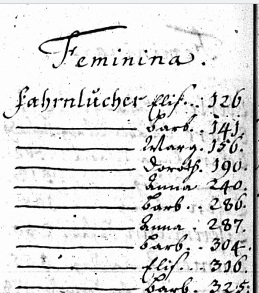 Feminina.
Fahrnlucher Elis... 126
Barb.. 141.
Marg. 156.
Doroth. 190.
Anna 240.
Barb.. 286.
Anna.. 287.
Barb.. 304.
Elis.. 306.
Barb.. 325.